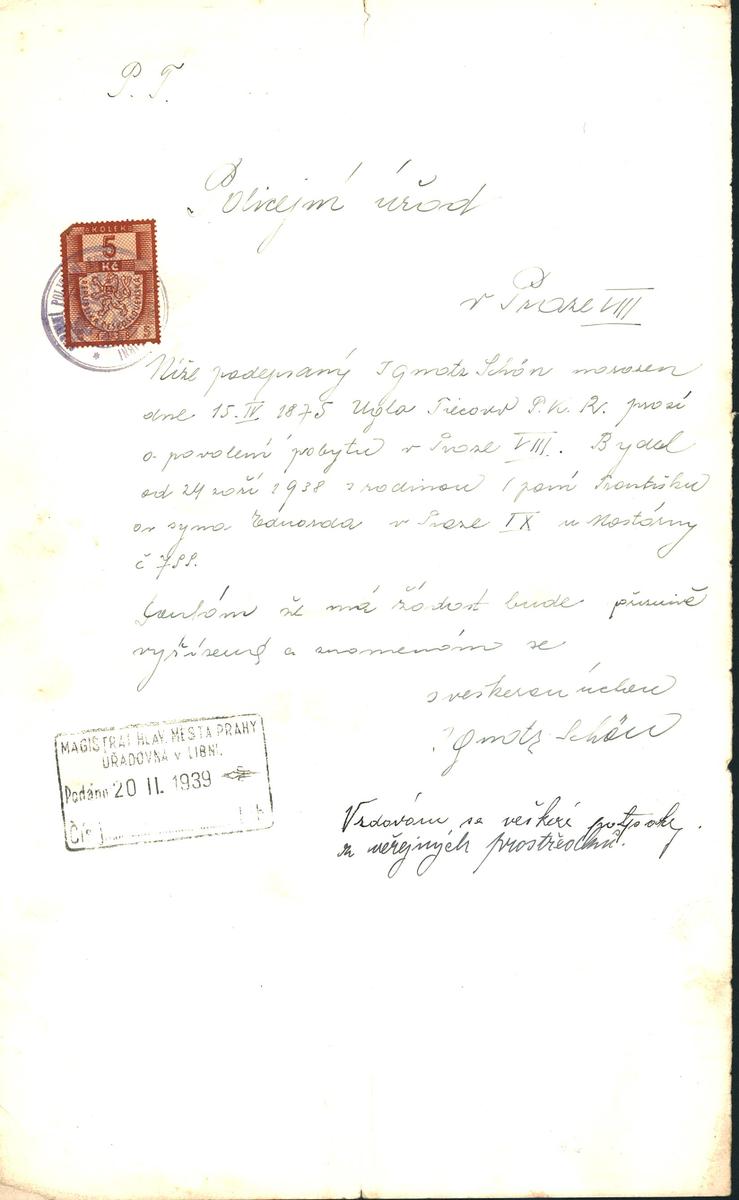 P. T.
Policejní úřad
v Praze VIII
KOLEK
5
Kč
Níže podepsaný Ignatz Schön narozen
dne 15. IV 1875 P. K. R. prosí
o povolení pobytu v Praze VIII. Bydel
od 24 září 1938 s rodinou paní Františku
syna Eduarda v Praze IX u Mostárny
č 788.
Doufám že má žádost bude příznivě
vyřízená a znamenám se
s veškerou úctou
Ignatz Schön
MAGISTRÁT HLAV. MĚSTA PRAHY
ÚŘADOVNA v LIBNI.
Podáno 20 II. 1939
Čís j.
Vzdávám se veškeré podpory
z veřejných prostředků.